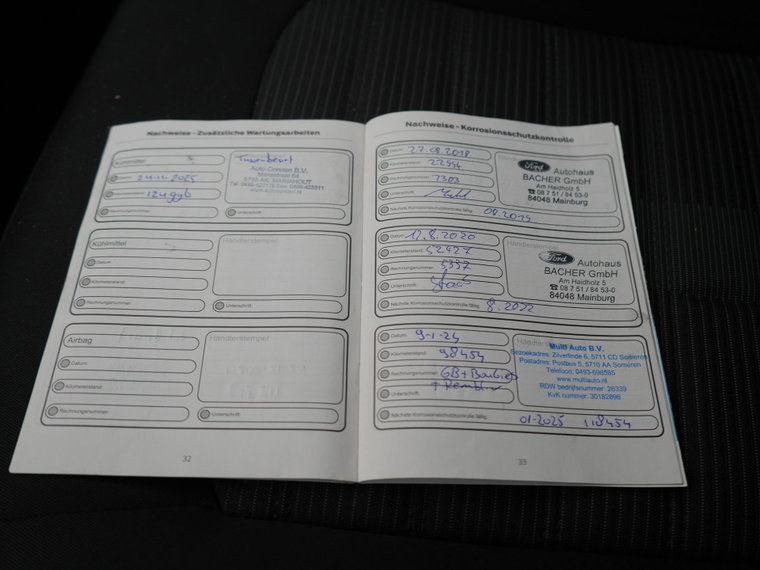 Nachweise - Zusätzliche Wartungsarbeiten
Kühlmittel
Datum: 24-11-2025
Kilometerstand:
Rechnungsnummer:
Auto Corsten B.V.
5738 AK MARIAHOUT
Unterschrift:
Kühlmittel
Datum:
Kilometerstand:
Rechnungsnummer:
Händlerstempel
Unterschrift:
Airbag
Datum:
Kilometerstand:
Rechnungsnummer:
Händlerstempel
Unterschrift:
32
Nachweise - Korrosionsschutzkontrolle
Datum: 27.08.2018
Kilometerstand: 22944
Rechnungsnummer: 7303
Unterschrift:
Nächste Korrosionsschutzkontrolle fällig: 08.2019
Ford Autohaus
BACHER GmbH
Am Haidholz 5
☎ 08 7 51 / 84 53-0
84048 Mainburg
Datum: 12.8.2020
Kilometerstand: 52427
Rechnungsnummer: 5337
Unterschrift:
Nächste Korrosionsschutzkontrolle fällig: 8.2022
Händlerstempel
Ford Autohaus
BACHER GmbH
Am Haidholz 5
☎ 08 7 51 / 84 53-0
84048 Mainburg
Datum: 9-1-24
Kilometerstand: 98454
Rechnungsnummer: GB+
Unterschrift:
Nächste Korrosionsschutzkontrolle fällig: 01-2025 118454
Multi Auto B.V.
Bezoekadres: Zilverlinde 6, 5711 CD Someren
Postadres: Postbus 5, 5710 AA Someren
Telefoon: 0493-096585
www.multiauto.nl
RDW bedrijfsnummer: 26339
KvK nummer: 30182896
33